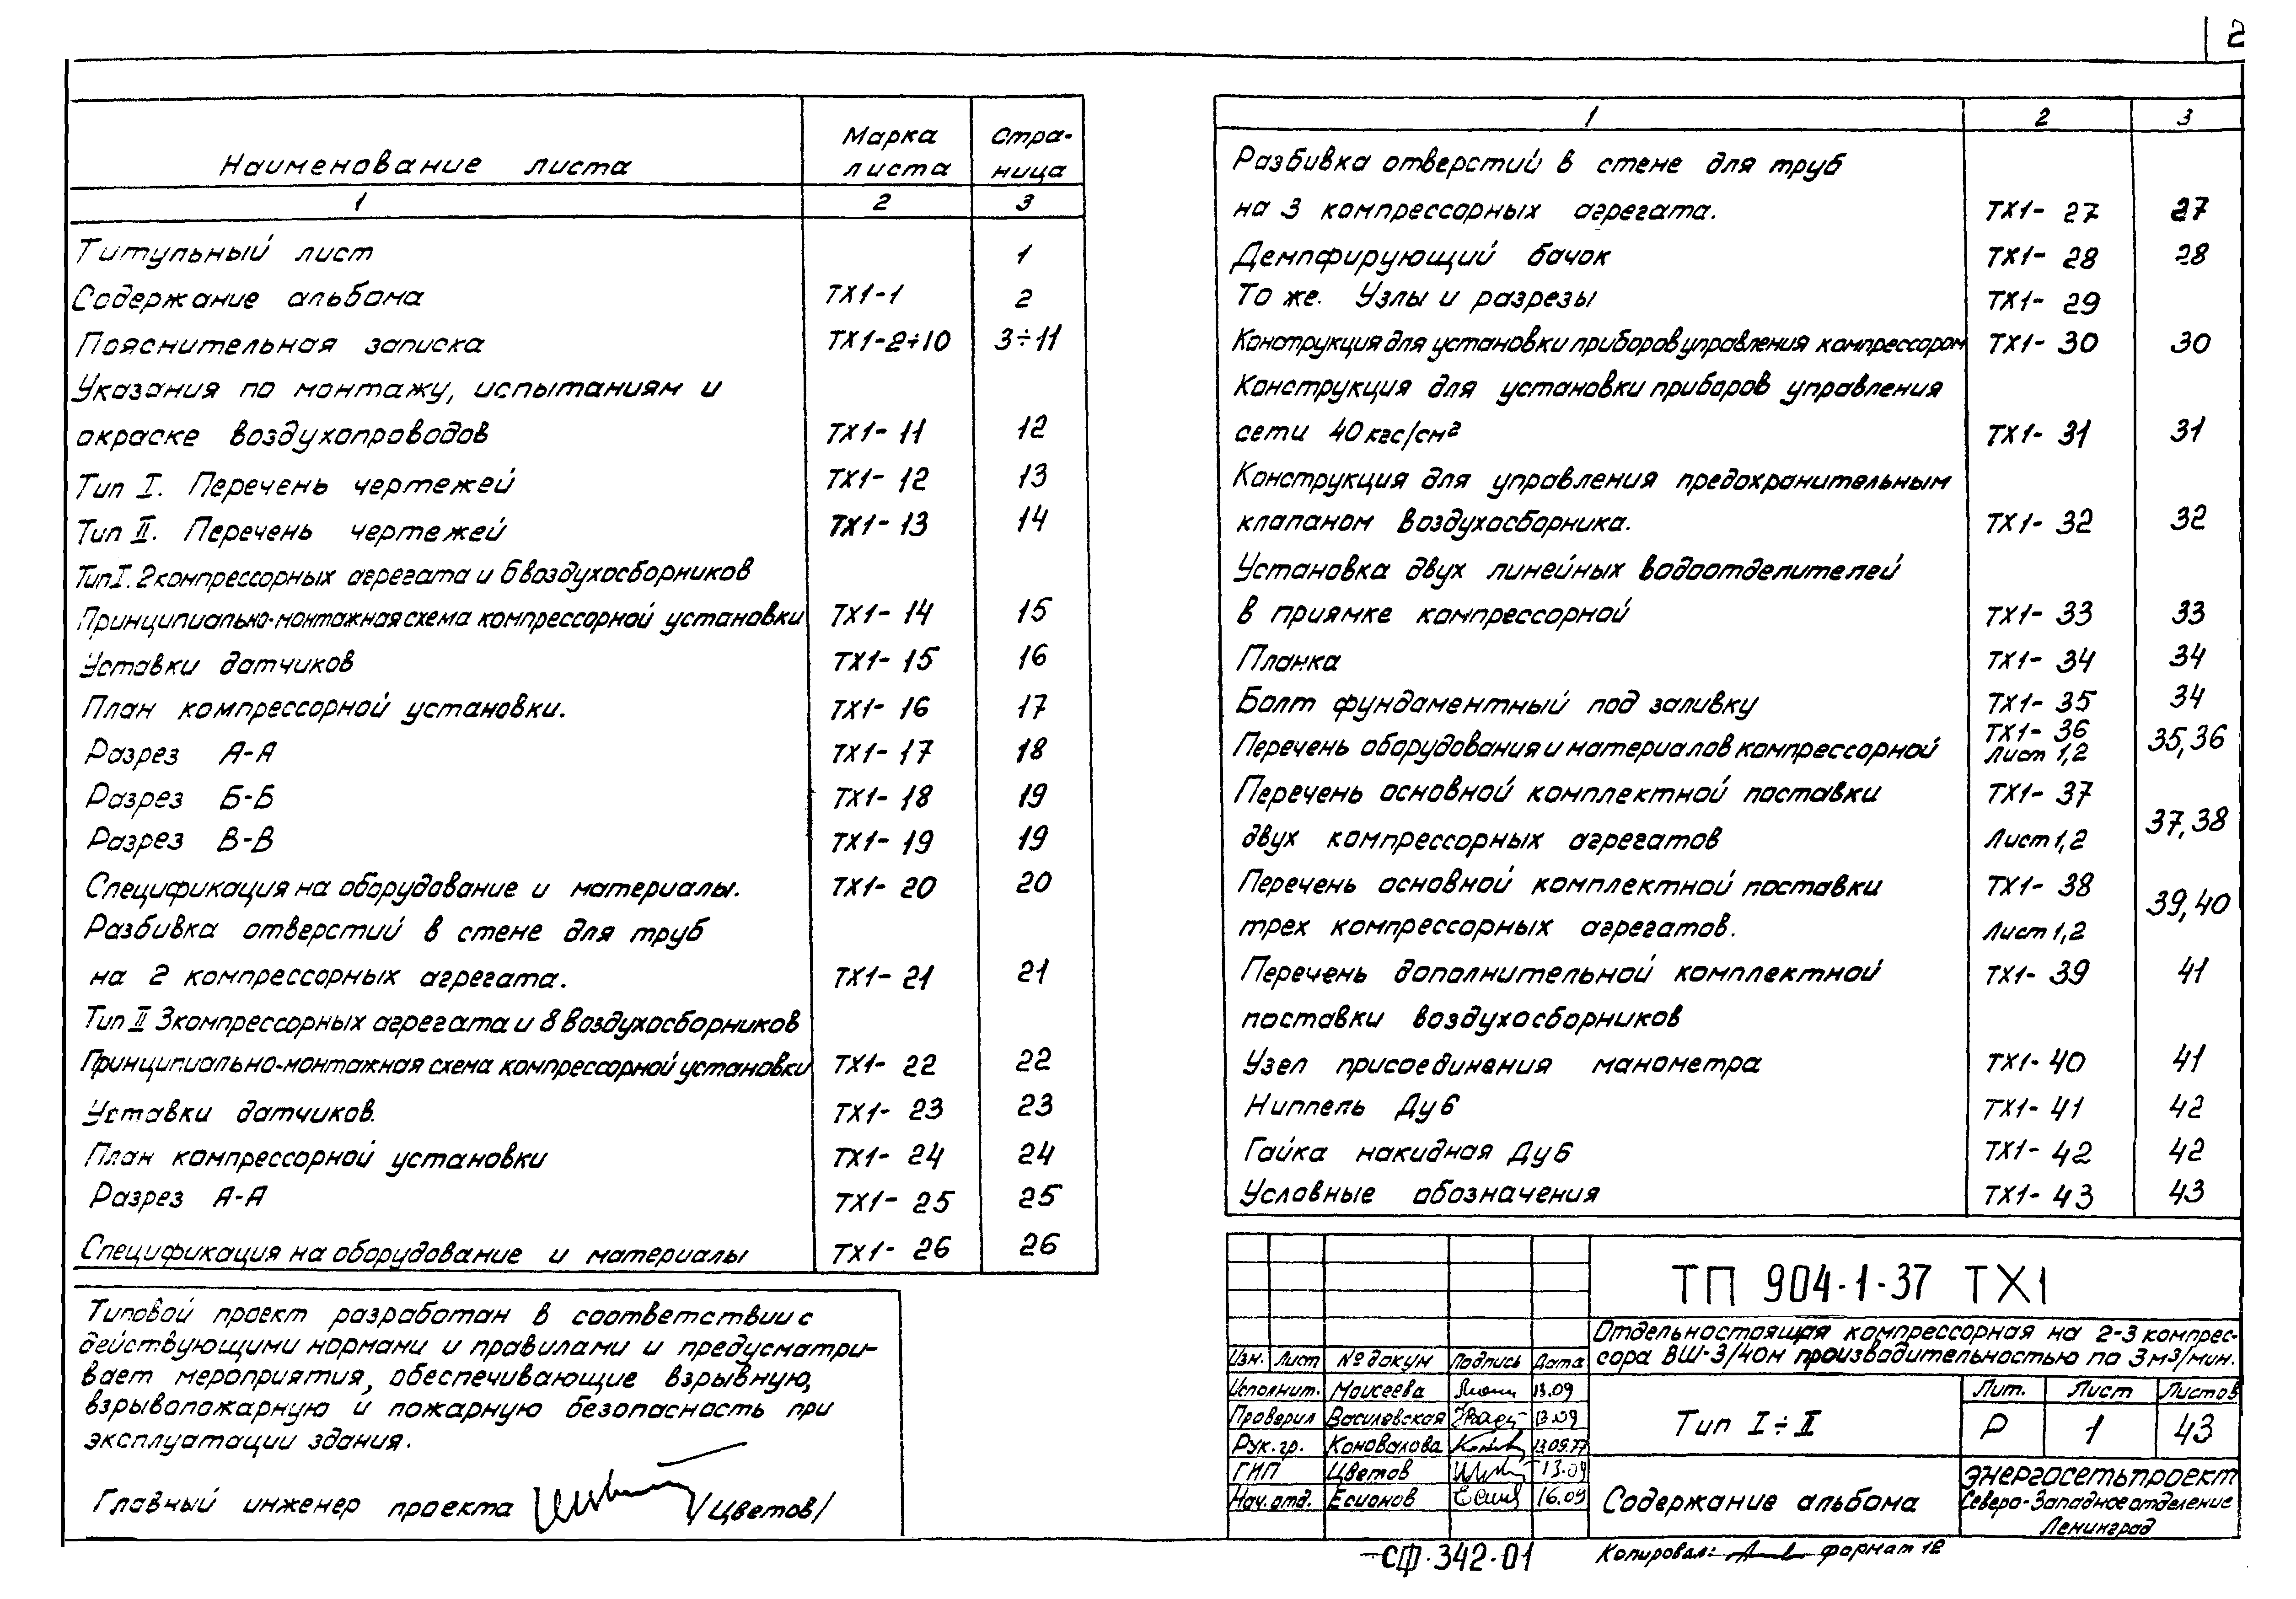 2
Наименование листа Марка листа Стра- ница
1 2 3
Титульный лист 1
Содержание альбома ТХ1-1 2
Пояснительная записка ТХ1-2÷10 3÷11
Указания по монтажу, испытаниям и
окраске воздухопроводов ТХ1-11 12
Тип I. Перечень чертежей ТХ1-12 13
Тип II. Перечень чертежей ТХ1-13 14
Тип I. 2 компрессорных агрегата и 6 воздухосборников
Принципиально-монтажная схема компрессорной установки ТХ1-14 15
Уставки датчиков ТХ1-15 16
План компрессорной установки. ТХ1-16 17
Разрез А-А ТХ1-17 18
Разрез Б-Б ТХ1-18 19
Разрез В-В ТХ1-19 19
Спецификация на оборудование и материалы. ТХ1-20 20
Разбивка отверстий в стене для труб
на 2 компрессорных агрегата. ТХ1-21 21
Тип II 3 компрессорных агрегата и 8 воздухосборников
Принципиально-монтажная схема компрессорной установки ТХ1-22 22
Уставки датчиков. ТХ1-23 23
План компрессорной установки ТХ1-24 24
Разрез А-А ТХ1-25 25
Спецификация на оборудование и материалы ТХ1-26 26
Типовой проект разработан в соответствии с
действующими нормами и правилами и предусматри-
вает мероприятия, обеспечивающие взрывную,
взрывопожарную и пожарную безопасность при
эксплуатации здания.
Главный инженер проекта /Цветов/
1 2 3
Разбивка отверстий в стене для труб
на 3 компрессорных агрегата. ТХ1-27 27
Демпфирующий бачок ТХ1-28 28
То же. Узлы и разрезы ТХ1-29
Конструкция для установки приборов управления компрессором ТХ1-30 30
Конструкция для установки приборов управления
сети 40 кгс/см² ТХ1-31 31
Конструкция для управления предохранительным
клапаном воздухосборника. ТХ1-32 32
Установка двух линейных водоотделителей
в приямке компрессорной ТХ1-33 33
Планка ТХ1-34 34
Болт фундаментный под заливку ТХ1-35 34
Перечень оборудования и материалов компрессорной ТХ1-36 Лист 1,2 35,36
Перечень основной комплектной поставки ТХ1-37
двух компрессорных агрегатов Лист 1,2 37,38
Перечень основной комплектной поставки ТХ1-38
трех компрессорных агрегатов. Лист 1,2 39,40
Перечень дополнительной комплектной ТХ1-39 41
поставки воздухосборников
Узел присоединения манометра ТХ1-40 41
Ниппель Ду6 ТХ1-41 42
Гайка накидная Ду6 ТХ1-42 42
Условные обозначения ТХ1-43 43
ТП 904-1-37 ТХ1
Отдельностоящая компрессорная на 2-3 компрес-
сора ВШ-3/40м производительностью по 3 м³/мин.
Изм. Лист № докум Подпись Дата
Исполнит. Моисеева 13.09
Проверил Василевская 13.09
Рук. гр. Коновалова 13.09.77
ГИП Цветов 13.09
Нач. отд. Есионов 16.09
Тип I÷II
Лит. Лист Листов
Р 1 43
Содержание альбома
Энергосетьпроект
Северо-Западное отделение
Ленинград
СФ-342-01
Копировал: формат 12